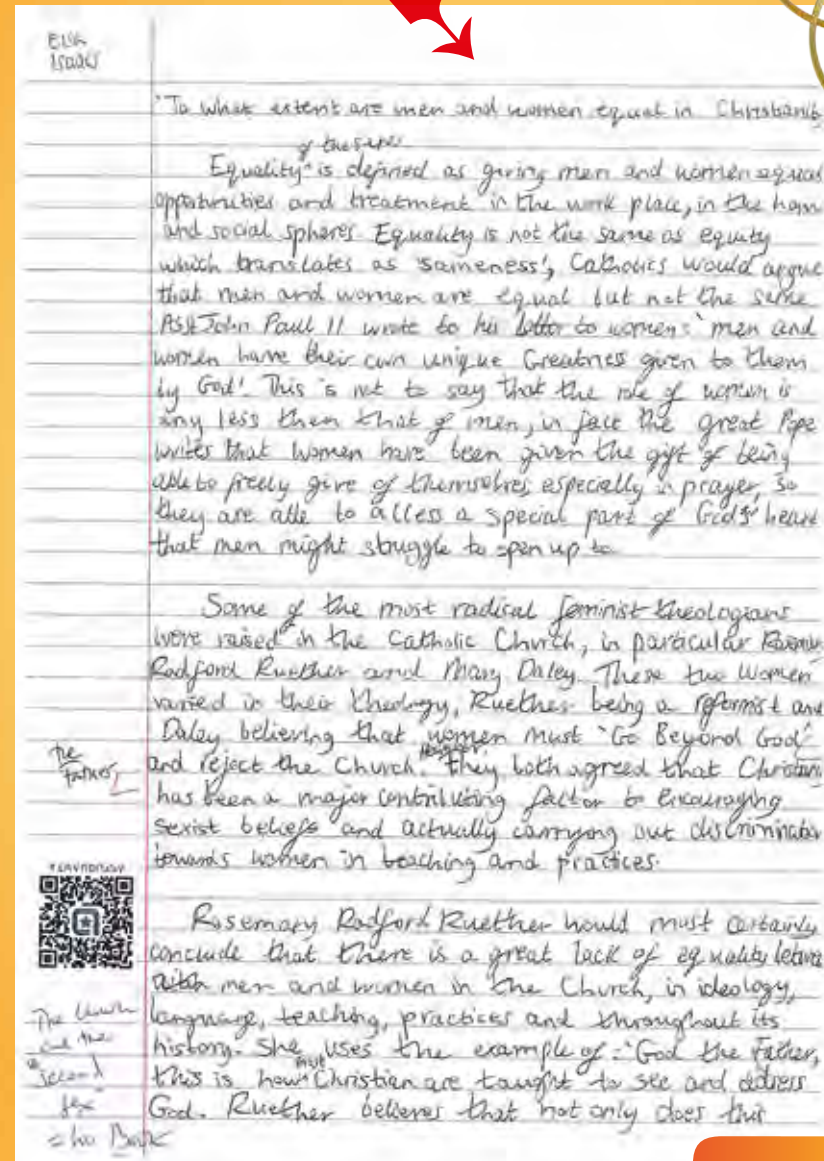 Ella
Isaacs
'To what extent are men and women equal in Christianity
of the sexes
Equality is defined as giving men and women equal
opportunities and treatment in the work place, in the hom
and social spheres. Equality is not the same as equity
which translates as 'sameness', Catholics would argue
that men and women are equal but not the same
As St John Paul II wrote to his letter to womens 'men and
women have their own unique Greatness given to them
by God'. This is not to say that the role of women is
any less then that of men, in fact the great Pope
writes that women have been given the gift of being
able to freely give of themselves, especially in prayer, so
they are able to access a special part of God's heart
that men might struggle to open up to.
Some of the most radical feminist theologians
were raised in the Catholic Church, in particular
Radford Ruether and Mary Daley. These two women
varied in their theology, Ruether being a reformist and
Daley believing that women must 'Go Beyond God'
the
Father
and reject the Church. They both agreed that Christian
has been a major contributing factor to encouraging
sexist beliefs and actually carrying out discriminatio
towards women in teaching and practices.
Rosemary Radford Ruether would most certainly
conclude that there is a great lack of equality
men and women in the Church, in ideology,
The Church
and the
"second
sex"
language, teaching, practices and throughout its
history. She uses the example of 'God the Father,
this is how Christian are taught to see and address
God. Ruether believes that not only does this